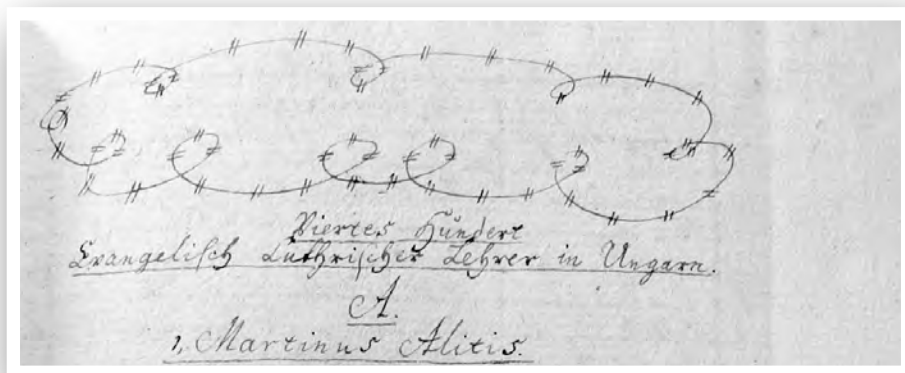 Viertes Hundert
Evangelisch Luthrischer Lehrer in Ungarn.
A.
1, Martinus Alitis.